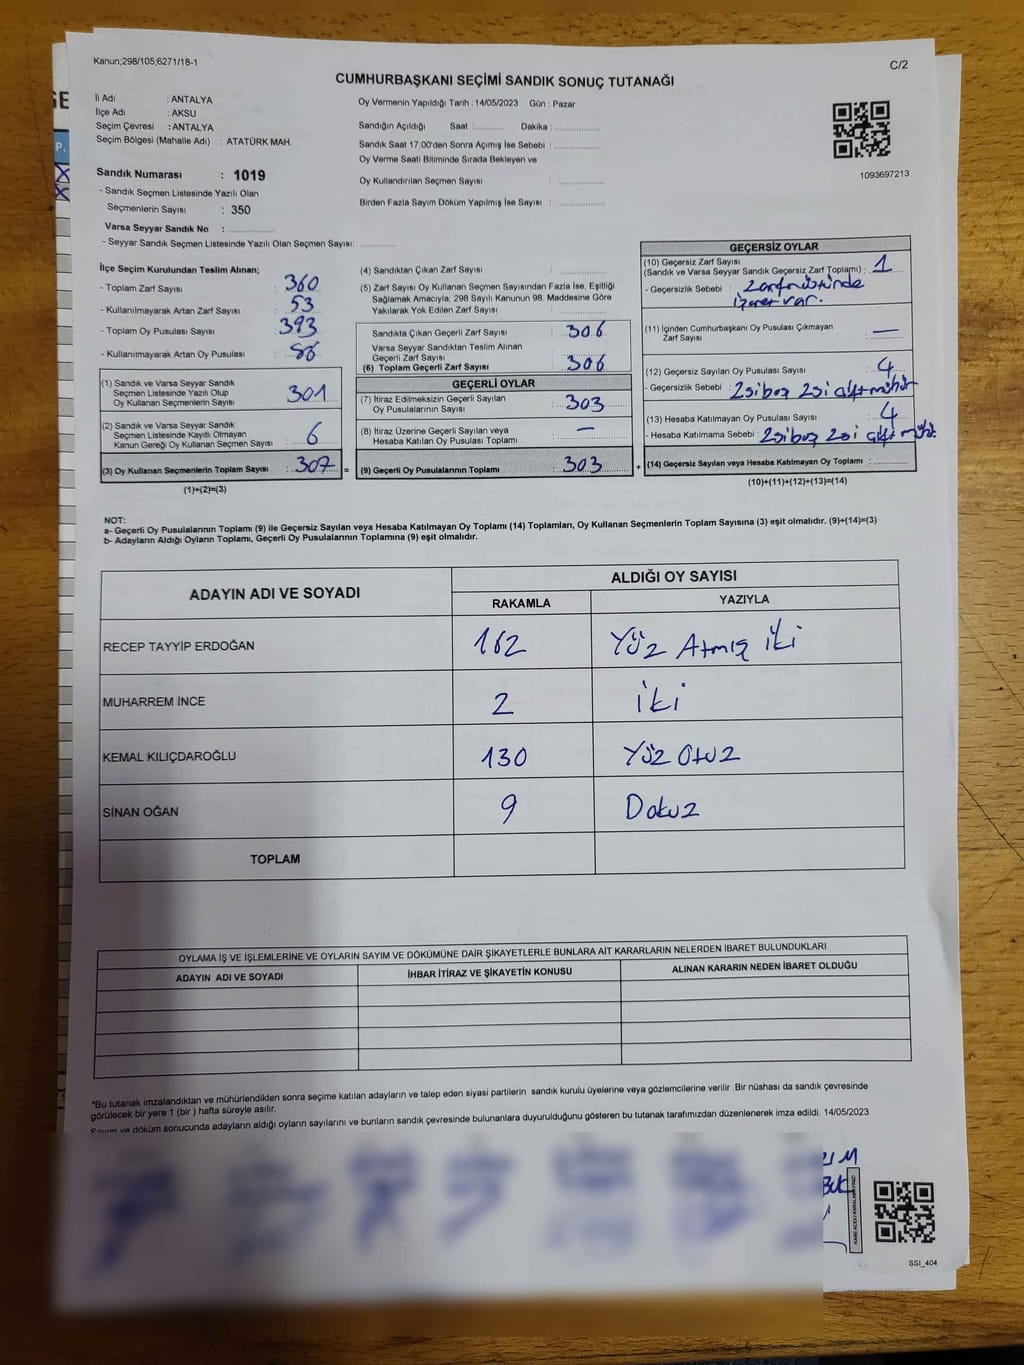 Kanun;298/105;6271/18-1
C/2
CUMHURBAŞKANI SEÇİMİ SANDIK SONUÇ TUTANAĞI
İl Adı : ANTALYA
İlçe Adı : AKSU
Seçim Çevresi : ANTALYA
Seçim Bölgesi (Mahalle Adı) : ATATÜRK MAH.
Sandık Numarası : 1019
- Sandık Seçmen Listesinde Yazılı Olan
Seçmenlerin Sayısı : 350
Varsa Seyyar Sandık No : ..............
- Seyyar Sandık Seçmen Listesinde Yazılı Olan Seçmen Sayısı: ............
Oy Vermenin Yapıldığı Tarih : 14/05/2023 Gün : Pazar
Sandığın Açıldığı Saat :.......... Dakika : ..............
Sandık Saat 17.00'den Sonra Açımış İse Sebebi : ..............
Oy Verme Saati Bitiminde Sırada Bekleyen ve
Oy Kullandırılan Seçmen Sayısı : ..............
Birden Fazla Sayım Döküm Yapılmış İse Sayısı : ..............
1093697213
İlçe Seçim Kurulundan Teslim Alınan;
- Toplam Zarf Sayısı : 360
- Kullanılmayarak Artan Zarf Sayısı : 53
- Toplam Oy Pusulası Sayısı : 393
- Kullanılmayarak Artan Oy Pusulası : 86
(1) Sandık ve Varsa Seyyar Sandık
Seçmen Listesinde Yazılı Olup
Oy Kullanan Seçmenlerin Sayısı : 301
(2) Sandık ve Varsa Seyyar Sandık
Seçmen Listesinde Kayıtlı Olmayan
Kanun Gereği Oy Kullanan Seçmen Sayısı : 6
(3) Oy Kullanan Seçmenlerin Toplam Sayısı : 307 =
(1)+(2)=(3)
(4) Sandıktan Çıkan Zarf Sayısı : ..............
(5) Zarf Sayısı Oy Kullanan Seçmen Sayısından Fazla İse, Eşitliği
Sağlamak Amacıyla, 298 Sayılı Kanunun 98. Maddesine Göre
Yakılarak Yok Edilen Zarf Sayısı : ..............
Sandıkta Çıkan Geçerli Zarf Sayısı : 306
Varsa Seyyar Sandıktan Teslim Alınan
Geçerli Zarf Sayısı
(6) Toplam Geçerli Zarf Sayısı : 306
GEÇERLİ OYLAR
(7) İtiraz Edilmeksizin Geçerli Sayılan
Oy Pusulalarının Sayısı : 303
(8) İtiraz Üzerine Geçerli Sayılan veya
Hesaba Katılan Oy Pusulası Toplamı : —
(9) Geçerli Oy Pusulalarının Toplamı : 303 +
GEÇERSİZ OYLAR
(10) Geçersiz Zarf Sayısı
(Sandık ve Varsa Seyyar Sandık Geçersiz Zarf Toplamı) : 1
- Geçersizlik Sebebi : Zarfın üstünde
işaret var.
(11) İçinden Cumhurbaşkanı Oy Pusulası Çıkmayan
Zarf Sayısı : —
(12) Geçersiz Sayılan Oy Pusulası Sayısı : 4
- Geçersizlik Sebebi : 2si boş 2si çift mühür
(13) Hesaba Katılmayan Oy Pusulası Sayısı : 4
- Hesaba Katılmama Sebebi : 2si boş 2si çift mühür.
(14) Geçersiz Sayılan veya Hesaba Katılmayan Oy Toplamı : ..........
(10)+(11)+(12)+(13)=(14)
NOT:
a- Geçerli Oy Pusulalarının Toplamı (9) ile Geçersiz Sayılan veya Hesaba Katılmayan Oy Toplamı (14) Toplamları, Oy Kullanan Seçmenlerin Toplam Sayısına (3) eşit olmalıdır. (9)+(14)=(3)
b- Adayların Aldığı Oyların Toplamı, Geçerli Oy Pusulalarının Toplamına (9) eşit olmalıdır.
ADAYIN ADI VE SOYADI
ALDIĞI OY SAYISI
RAKAMLA YAZIYLA
RECEP TAYYİP ERDOĞAN 162 Yüz Atmış iki
MUHARREM İNCE 2 iki
KEMAL KILIÇDAROĞLU 130 Yüz Otuz
SİNAN OĞAN 9 Dokuz
TOPLAM
OYLAMA İŞ VE İŞLEMLERİNE VE OYLARIN SAYIM VE DÖKÜMÜNE DAİR ŞİKAYETLERLE BUNLARA AİT KARARLARIN NELERDEN İBARET BULUNDUKLARI
ADAYIN ADI VE SOYADI İHBAR İTİRAZ VE ŞİKAYETİN KONUSU ALINAN KARARIN NEDEN İBARET OLDUĞU
*Bu tutanak imzalandıktan ve mühürlendikten sonra seçime katılan adayların ve talep eden siyasi partilerin sandık kurulu üyelerine veya gözlemcilerine verilir .Bir nüshası da sandık çevresinde
görülecek bir yere 1 (bir ) hafta süreyle asılır.
Sayım ve döküm sonucunda adayların aldığı oyların sayılarını ve bunların sandık çevresinde bulunanlara duyurulduğunu gösteren bu tutanak tarafımızdan düzenlenerek imza edildi. 14/05/2023
SSI_404